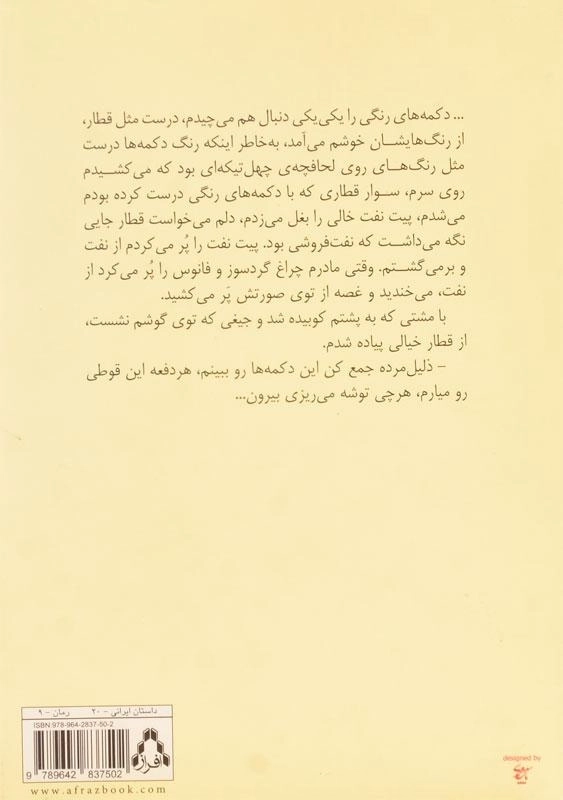 ... دکمه‌های رنگی را یکی‌یکی دنبال هم می‌چیدم، درست مثل قطار،
از رنگ‌هایشان خوشم می‌آمد، به‌خاطر اینکه رنگ دکمه‌ها درست
مثل رنگ‌های روی لحافچه‌ی چهل‌تیکه‌ای بود که می‌کشیدم
روی سرم، سوار قطاری که با دکمه‌های رنگی درست کرده بودم
می‌شدم، پیت نفت خالی را بغل می‌زدم، دلم می‌خواست قطار جایی
نگه می‌داشت که نفت‌فروشی بود. پیت نفت را پُر می‌کردم از نفت
و برمی‌گشتم. وقتی مادرم چراغ گردسوز و فانوس را پُر می‌کرد از
نفت، می‌خندید و غصه از توی صورتش پَر می‌کشید.
با مشتی که به پشتم کوبیده شد و جیغی که توی گوشم نشست،
از قطار خیالی پیاده شدم.
- ذلیل‌مرده جمع کن این دکمه‌ها رو ببینم، هردفعه این قوطی
رو میارم، هرچی توشه می‌ریزی بیرون...
داستان ایرانی - ۲۰ رمان - ۹
ISBN:978-964-2837-50-2
9 789642 837502
افراز
www.afrazbook.com
designed by